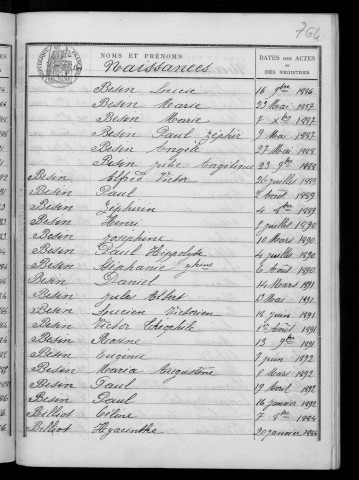 764
NOMS ET PRÉNOMS
DATES DES ACTES
ET
DES REGISTRES
Naissances
Besin Louise 16 9bre 1886
Besin Marie 23 Mai 1887
Besin Marie 7 Xbre 1887
Besin Paul Zéphir 9 Mai 1887
Besin Angèle 27 Mai 1888
Besin Julie Angélique 23 9bre 1888
Besin Alfred Victor 26 juillet 1889
Besin Paul 2 Août 1889
Besin Zéphirin 4 8bre 1889
Besin Henri 9 juillet 1890
Besin Joséphine 10 Mars 1890
Besin Paul Hippolyte 4 juillet 1890
Besin Stéphanie 6 Août 1890
Besin Daniel 14 Mars 1891
Besin Jules Albert 13 Mai 1891
Besin Lucien Victorien 18 juin 1891
Besin Victor Théophile 1er Août 1891
Besin 13 9bre 1891
Besin Eugénie 7 juin 1892
Besin Maria Augustine 8 Mars 1892
Besin Paul 19 Avril 1892
Besin Paul 16 janvier 1892
Billiot Céline 7 8bre 1884
Billiot Hyacinthe 20 janvier 1884